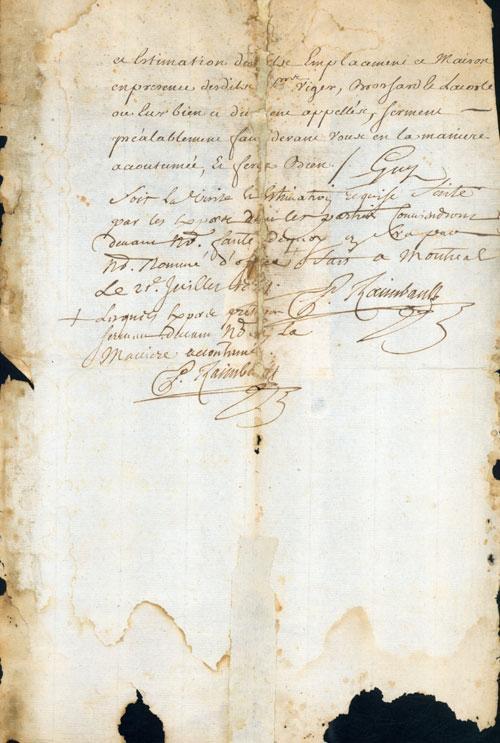 et Estimation desdits Emplacement et Maison
en presence desdits Viger, Brossard & Lacoste
ou Eux bien et duement appellés, serment
préalablement fait devant Vous en la maniere
accoutumée, Et ferez Bien. / Guy
Soit la Visite & Estimation requise faite
par les Experts dont les parties Conviendront
devant Nd. faute de quoy il en sera par
Nd. Nommé d'office + fait a Montreal
Le 21e. Juillet
P. Raimbault
+ Lesquels Experts preteront
serment devant Nd. en La
Maniere accoutumé
P. Raimbault